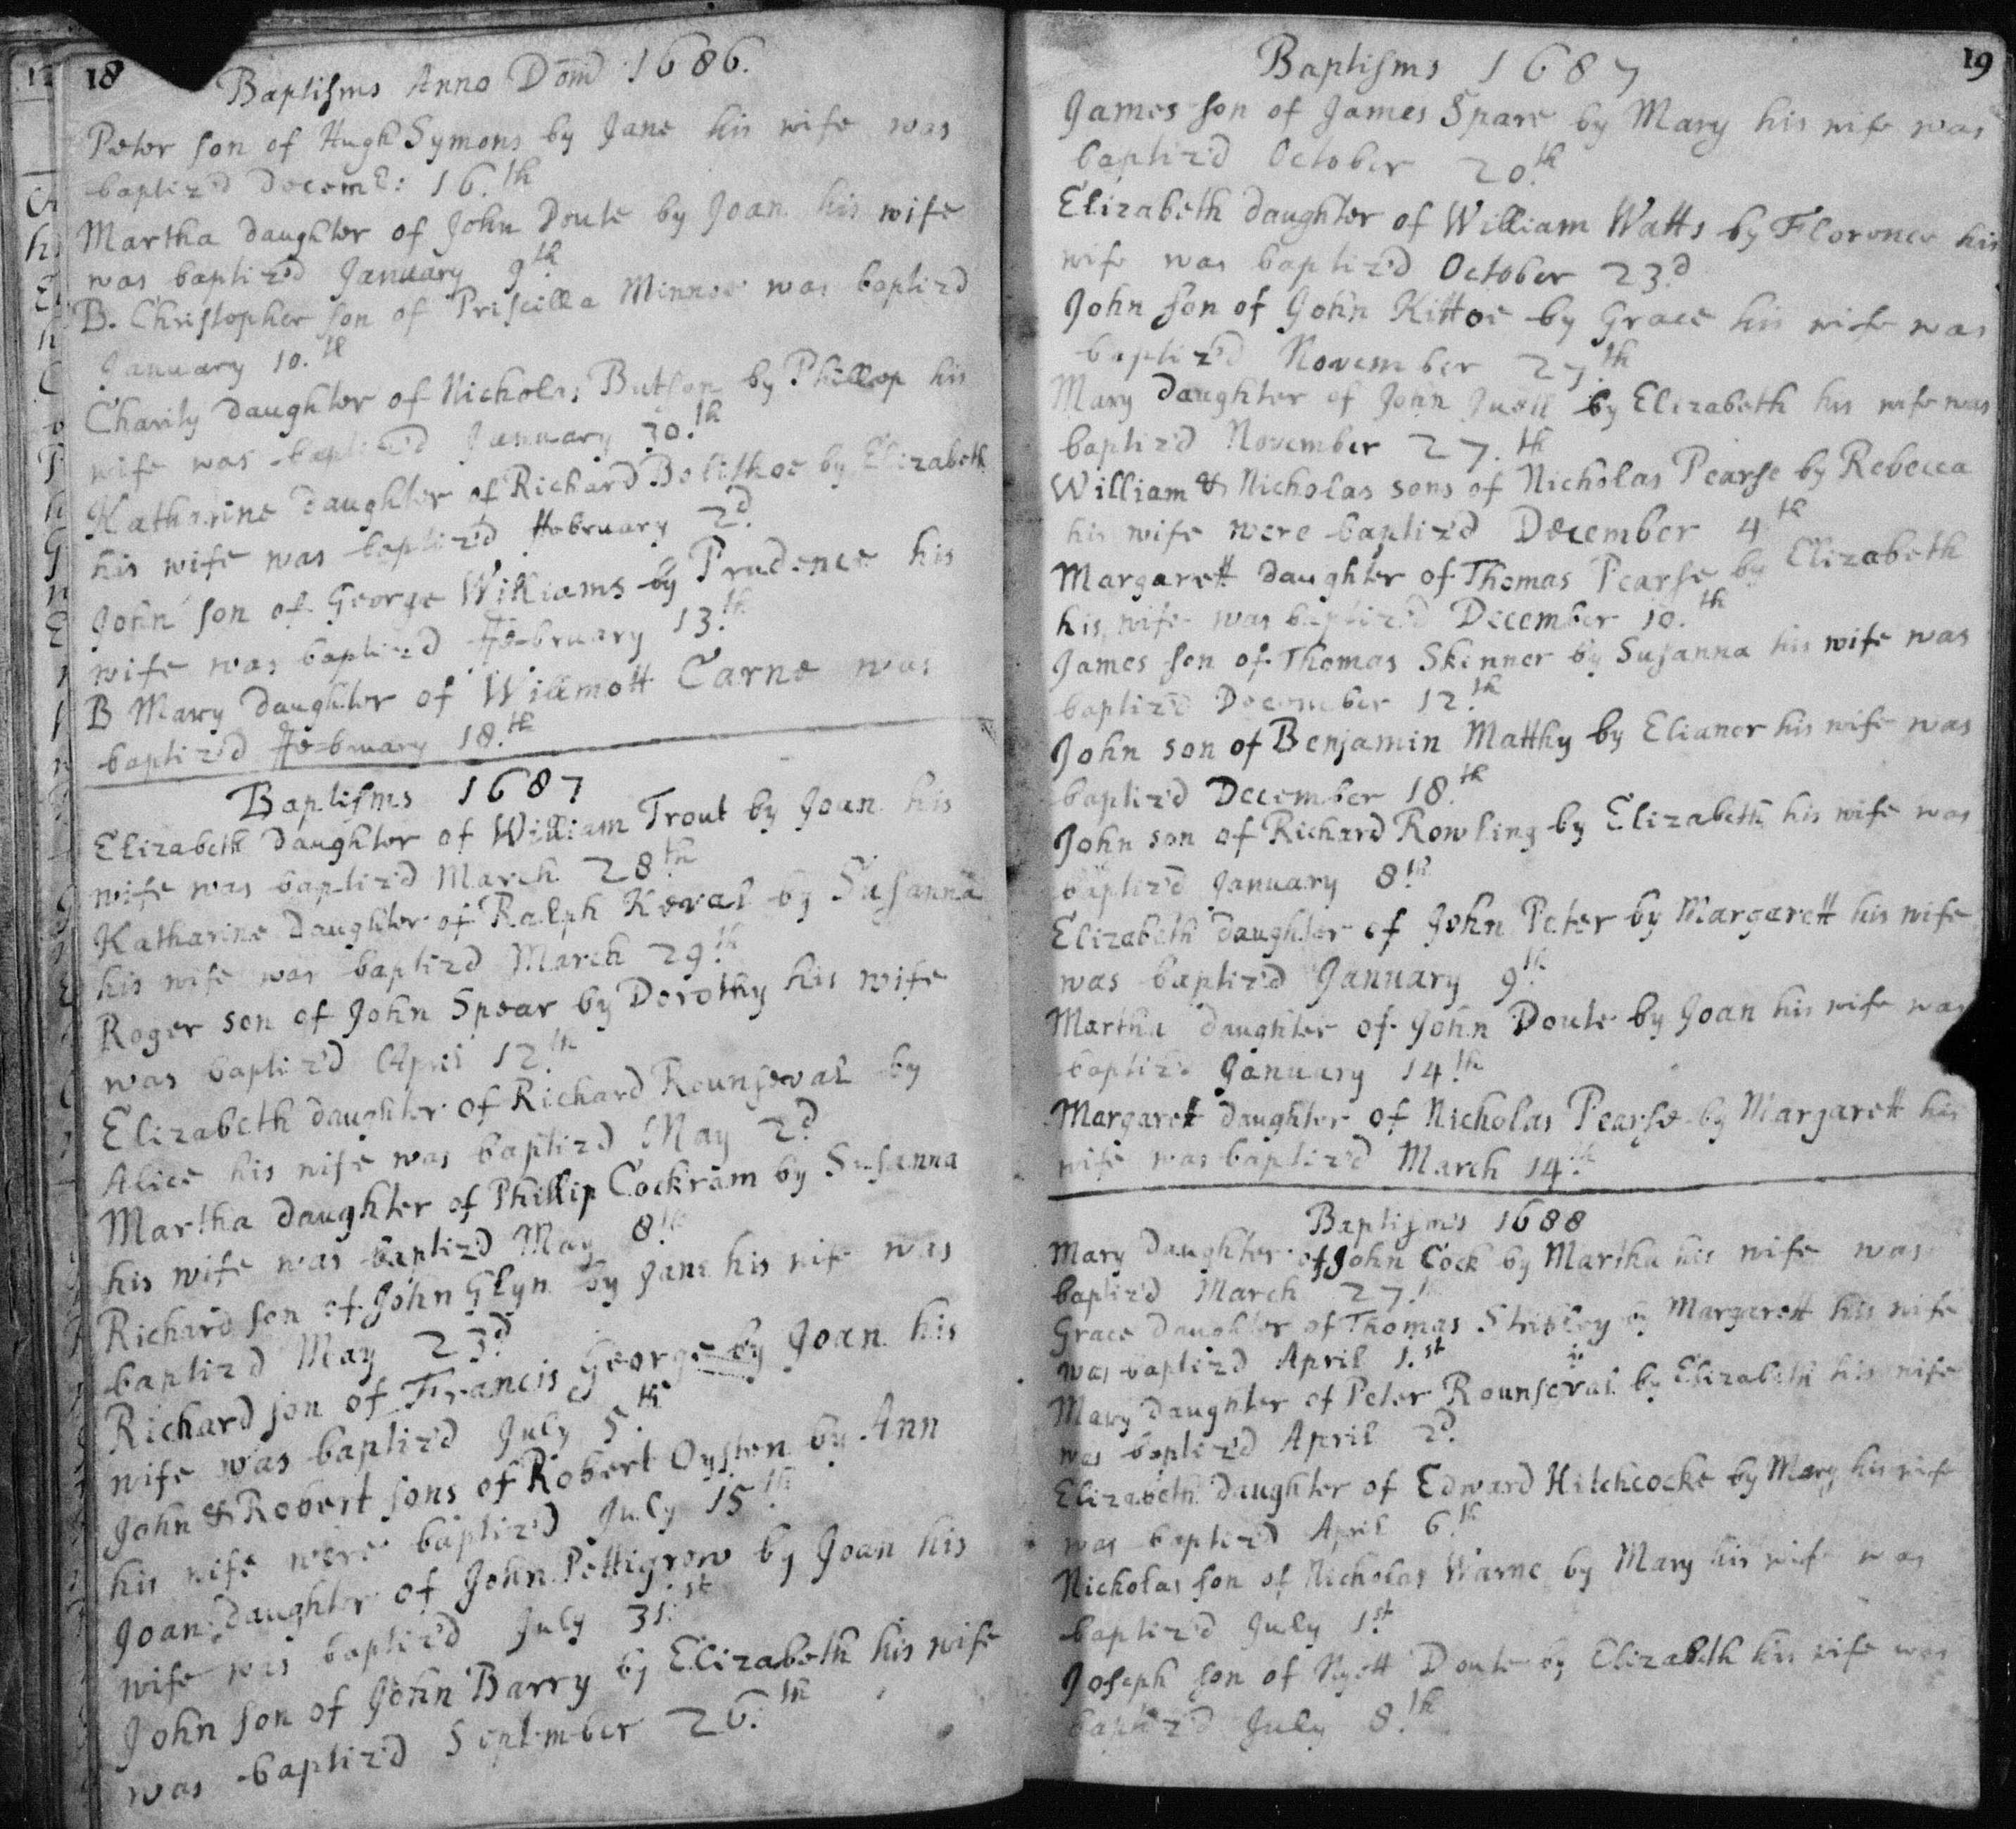 18
Baptisms Anno Dom̄ 1686.
Peter son of Hugh Symons by Jane his wife was
baptiz'd Decemb: 16.th
Martha daughter of John Doute by Joan his wife
was baptiz'd January 9th
B. Christopher son of Priscilla Minnoe was baptizd
January 10.th
Charity daughter of Nicholas Butson by Phillip his
wife was baptiz'd January 30.th
Katharine daughter of Richard Bolithoe by Elizabeth
his wife was baptiz'd ffebruary 2d
John son of George Williams by Prudence his
wife was baptiz'd ffebruary 13.th
B Mary daughter of Willmott Carne was
baptiz'd ffebruary 18.th
Baptisms 1687
Elizabeth daughter of William Trout by Joan his
wife was baptiz'd March 28th
Katharine daughter of Ralph Keval by Susanna
his wife was baptizd March 29.th
Roger son of John Spear by Dorothy his wife
was baptiz'd April 12.th
Elizabeth daughter of Richard Rounseval by
Alice his wife was baptizd May 2d
Martha daughter of Phillip Cockram by Susanna
his wife was baptizd May 8.th
Richard son of John Glyn by Jane his wife was
baptizd May 23d
Richard son of Francis George by Joan his
wife was baptiz'd July 5.th
John & Robert sons of Robert Oysten by Ann
his wife were baptizd July 15.th
Joan daughter of John Pettigrow by Joan his
wife was baptiz'd July 31.st
John son of John Barry by Elizabeth his wife
was baptiz'd September 26.th
19
Baptisms 1687
James son of James Spare by Mary his wife was
baptiz'd October 20.th
Elizabeth daughter of William Watts by Florence his
wife was baptiz'd October 23.d
John son of John Kittoe by Grace his wife was
baptiz'd November 27.th
Mary daughter of John Juell by Elizabeth his wife was
baptiz'd November 27.th
William & Nicholas sons of Nicholas Pearse by Rebecca
his wife were baptiz'd December 4th
Margarett daughter of Thomas Pearse by Elizabeth
his wife was baptiz'd December 10.th
James son of Thomas Skinner by Susanna his wife was
baptiz'd December 12.th
John son of Benjamin Matthy by Elianor his wife was
baptiz'd December 18.th
John son of Richard Rowling by Elizabeth his wife was
baptiz'd January 8.th
Elizabeth daughter of John Peter by Margarett his wife
was baptiz'd January 9.th
Martha daughter of John Doute by Joan his wife was
baptiz'd January 14.th
Margarett daughter of Nicholas Pearse by Margarett his
wife was baptiz'd March 14.th
Baptisms 1688
Mary daughter of John Cock by Martha his wife was
baptiz'd March 27.th
Grace daughter of Thomas Stribley by Margarett his wife
was baptizd April 1.st
Mary daughter of Peter Rounseval by Elizabeth his wife
was baptiz'd April 2d
Elizabeth daughter of Edward Hitchcocke by Mary his wife
was baptizd April 6.th
Nicholas son of Nicholas Warne by Mary his wife was
baptiz'd July 1st
Joseph son of Doute by Elizabeth his wife was
baptiz'd July 8.th